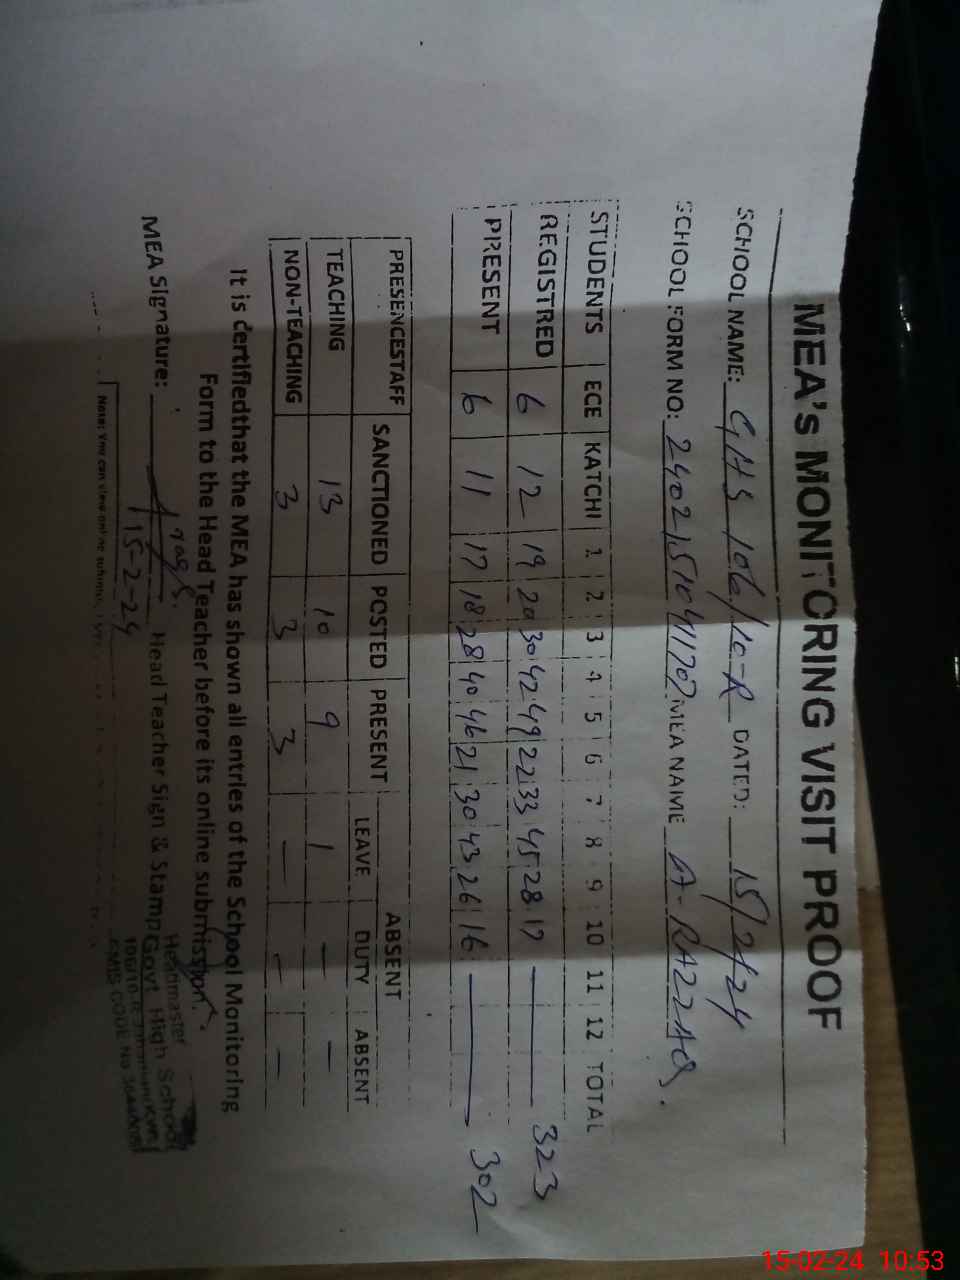 MEA's MONITORING VISIT PROOF
SCHOOL NAME: GHS 106/10-R DATED: 15/2/24
SCHOOL FORM NO: 2402151041707 MEA NAME A-RAZZAQ.
STUDENTS ECE KATCHI 1 2 3 4 5 6 7 8 9 10 11 12 TOTAL
REGISTRED 6 12 19 20 30 42 49 22 33 45 28 17 — 323
PRESENT 6 11 17 18 28 40 46 21 30 43 26 16 — 302
PRESENCESTAFF SANCTIONED POSTED PRESENT ABSENT
LEAVE DUTY ABSENT
TEACHING 13 10 9 1 — —
NON-TEACHING 3 3 3 — — —
It is certifiedthat the MEA has shown all entries of the School Monitoring
Form to the Head Teacher before its online submission.
MEA Signature: Head Teacher Sign & Stamp
15-2-24
Headmaster
Govt. High School
Note: You can view online
15-02-24 10:53